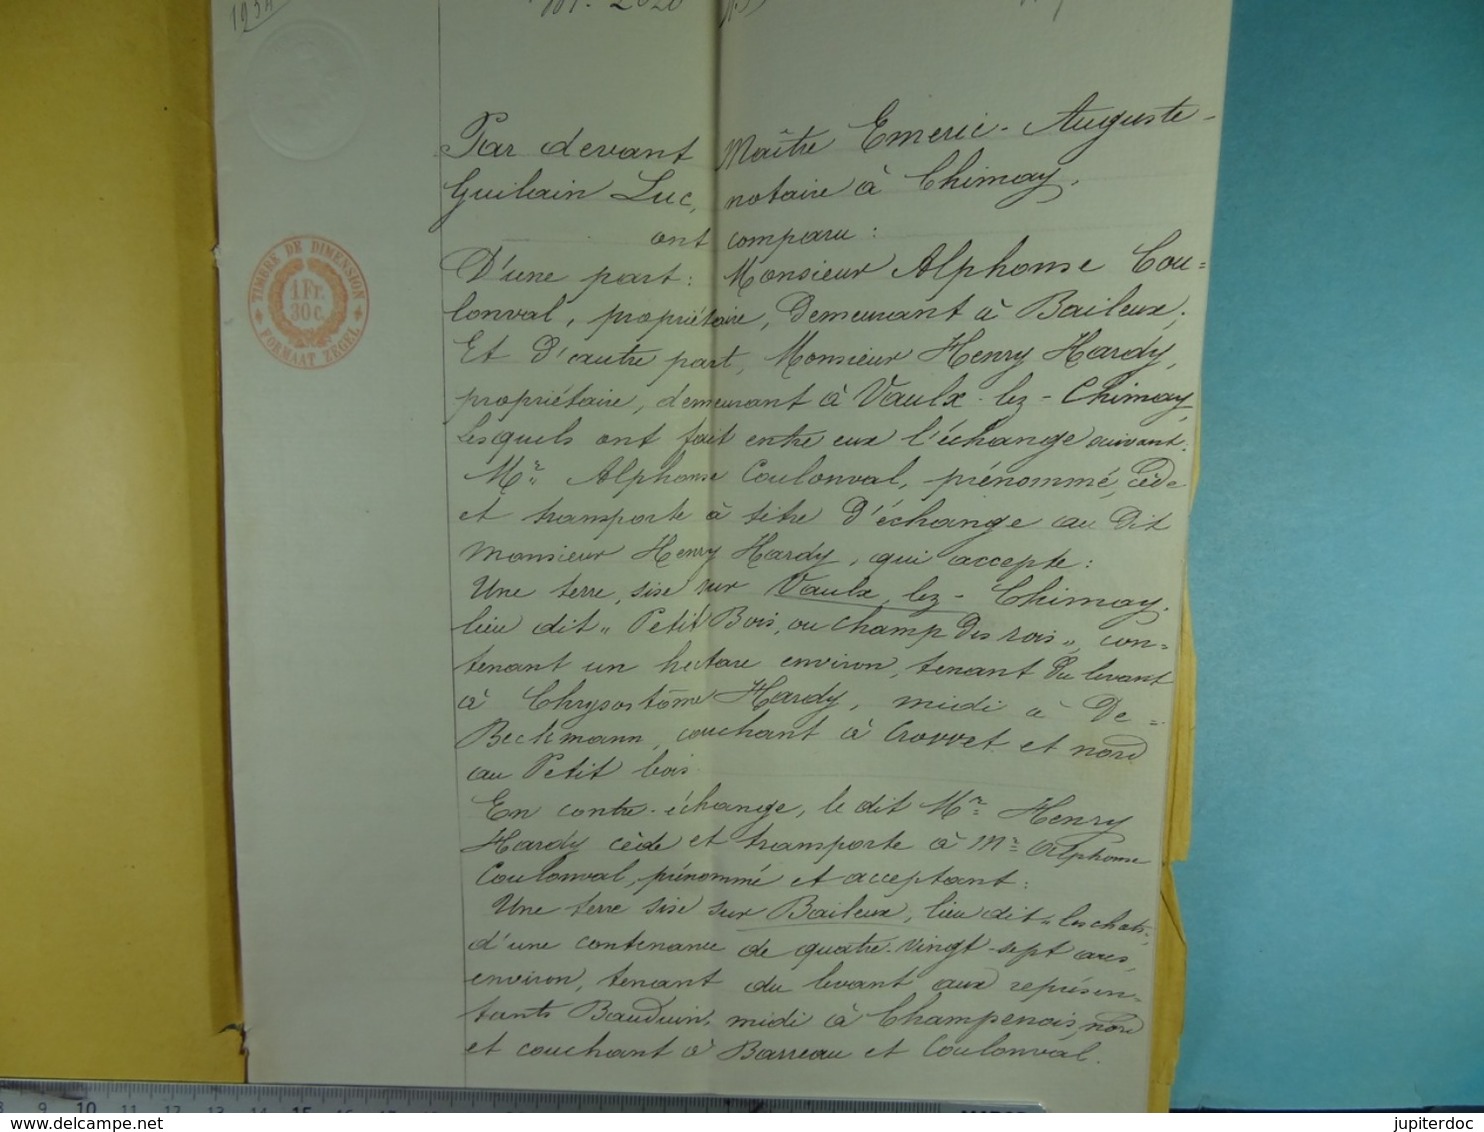 1934
2020
Par devant Maître Emeric-Auguste-
Guilain Luc, notaire à Chimay,
ont comparu :
D'une part : Monsieur Alphonse Cou=
lonval, propriétaire, demeurant à Baileux,
Et d'autre part, Monsieur Henry Hardy,
propriétaire, demeurant à Vaulx-lez-Chimay,
Lesquels ont fait entre eux l'échange suivant.
Mr Alphonse Coulonval, prénommé, cède
et transporte à titre d'échange au dit
Monsieur Henry Hardy, qui accepte :
Une terre, sise sur Vaulx-lez-Chimay,
lieu dit „ Petit Bois, ou champ des rois „, con=
tenant un hectare environ, tenant du levant
à Chrysostôme Hardy, midi à De=
Beckmann, couchant à Crovvet et nord
au Petit bois.
En contre-échange, le dit Mr Henry
Hardy cède et transporte à Mr Alphonse
Coulonval, prénommé et acceptant :
Une terre sise sur Baileux, lieu dit „ les chats „,
d'une contenance de quatre-vingt-sept ares
environ, tenant du levant aux représen=
tants Bauduin, midi à Champenois, nord
et couchant à Barreau et Coulonval.
TIMBRE DE DIMENSION
1 Fr.
30 C.
FORMAAT ZEGEL
8 9 10 11 12 13 14 15 16 17
jupiterdoc
www.delcampe.net